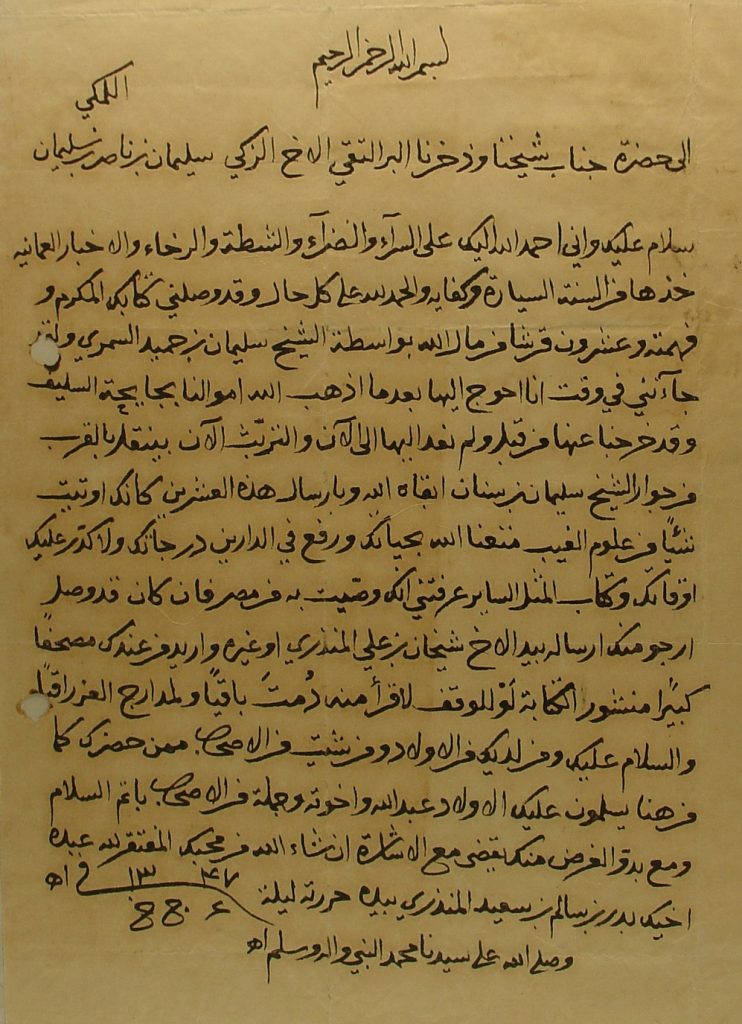 بسم الله الرحمن الرحيم
اللمكي
الى حضرة جناب شيخنا وذخرنا البر التقي الاخ الزكي سليمان بن ناصر بن سليمان
سلام عليك واني احمد الله اليك على السرآء والضرآء والشطة والرخاء والاخبار العمانيه
خذها من السنة السيارة وكفايه والحمد لله على كل حال وقد وصلني كتابك المكرم و
فهمته وعشرون قرشا من مال الله بواسطة الشيخ سليمان بن حميد السمري ولقد
جآءتني في وقت انا احوج اليها بعدما اذهب الله اموالنا بجايحة السليف
وقد خرجنا عنها من قبل ولم نعد اليها الى الآن والتربّث الآن ببنقلة بالقرب
من جوار الشيخ سليمان بن سنان ابقاه الله وبارسال هذه العشرين كانك اوتيت
شيًا من علوم الغيب متعنا الله بحياتك ورفع في الدارين درجاتك ولا كدّر عليك
اوقاتك وكتاب المثل الساير عرفتني انك وصّيت به من مصر فان كان قد وصل
ارجو منك ارساله بيد الاخ شيخان بن علي المنذري او غيره واريد من عندك مصحفًا
كبيرًا منشور الكتابة لَوْ للوقف لاقرأ منه دُمتَ باقيًا ولمدارج العز راقيًا
والسلام عليك ومن لديك من الاولاد ومن شيت من الاصحاب ممن حضرك كما
من هنا يسلمون عليك الاولاد عبدالله واخوته وجملة من الاصحاب باتم السلام
ومع بدو الغرض منك يقضى مع الاشارة ان شاء الله من محبك المفتقر لله عبده
اخيك بدر بن سالم بن سعيد المنذري بيده حررته ليلة ٤ ج ج في ١٣٤٧ اه
وصلى الله على سيدنا محمد النبي واله وسلم اه